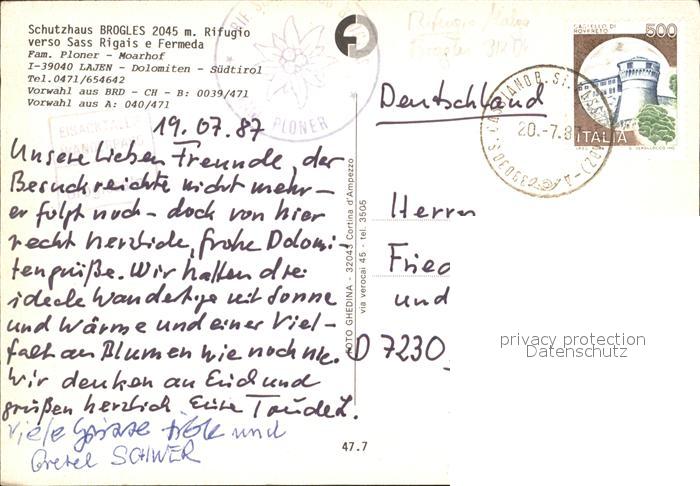 Schutzhaus BROGLES 2045 m. Rifugio
verso Sass Rigais e Fermeda
Fam. Ploner - Moarhof
I-39040 LAJEN - Dolomiten - Südtirol
Tel.0471/654642
Vorwahl aus BRD - CH - B: 0039/471
Vorwahl aus A: 040/471
PLONER
500
CASTELLO DI
ROVERETO
ITALIA
20.-7.8
Deutschland
19.07.87
Unsere lieben Freunde, der
Besuch reichte nicht mehr –
erfolgt noch – doch von hier
recht herzliche, frohe Dolomi
tengrüße. Wir hatten drei
ideale Wandertage mit Sonne
und Wärme und einer Viel-
falt an Blumen wie noch nie.
Wir denken an Euch und
grüßen herzlich Eure
Viele Grüsse und
Gretel SCHWER
Herrn
Fried
und
D 7230
FOTO GHEDINA - 32043 Cortina d'Ampezzo
via verocai 45 - tel. 3505
47.7
privacy protection
Datenschutz